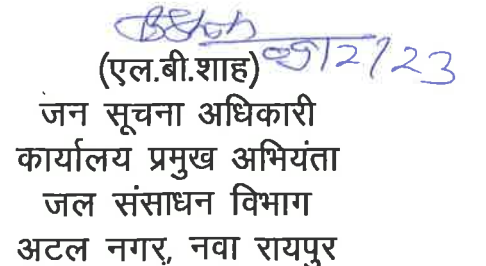 05/12/23
(एल.बी.शाह)
जन सूचना अधिकारी
कार्यालय प्रमुख अभियंता
जल संसाधन विभाग
अटल नगर, नवा रायपुर